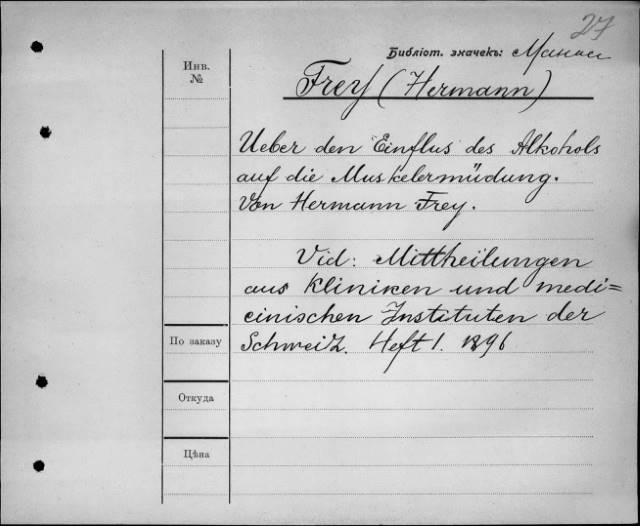 27
Библіот. значекъ:
Инв.
№
Frey (Hermann)
Ueber den Einflus des Alkohols
auf die Muskelermüdung.
Von Hermann Frey.
Vid: Mittheilungen
aus Kliniken und medi=
cinischen Instituten der
Schweiz. Heft 1. 1896
По заказу
Откуда
Цѣна